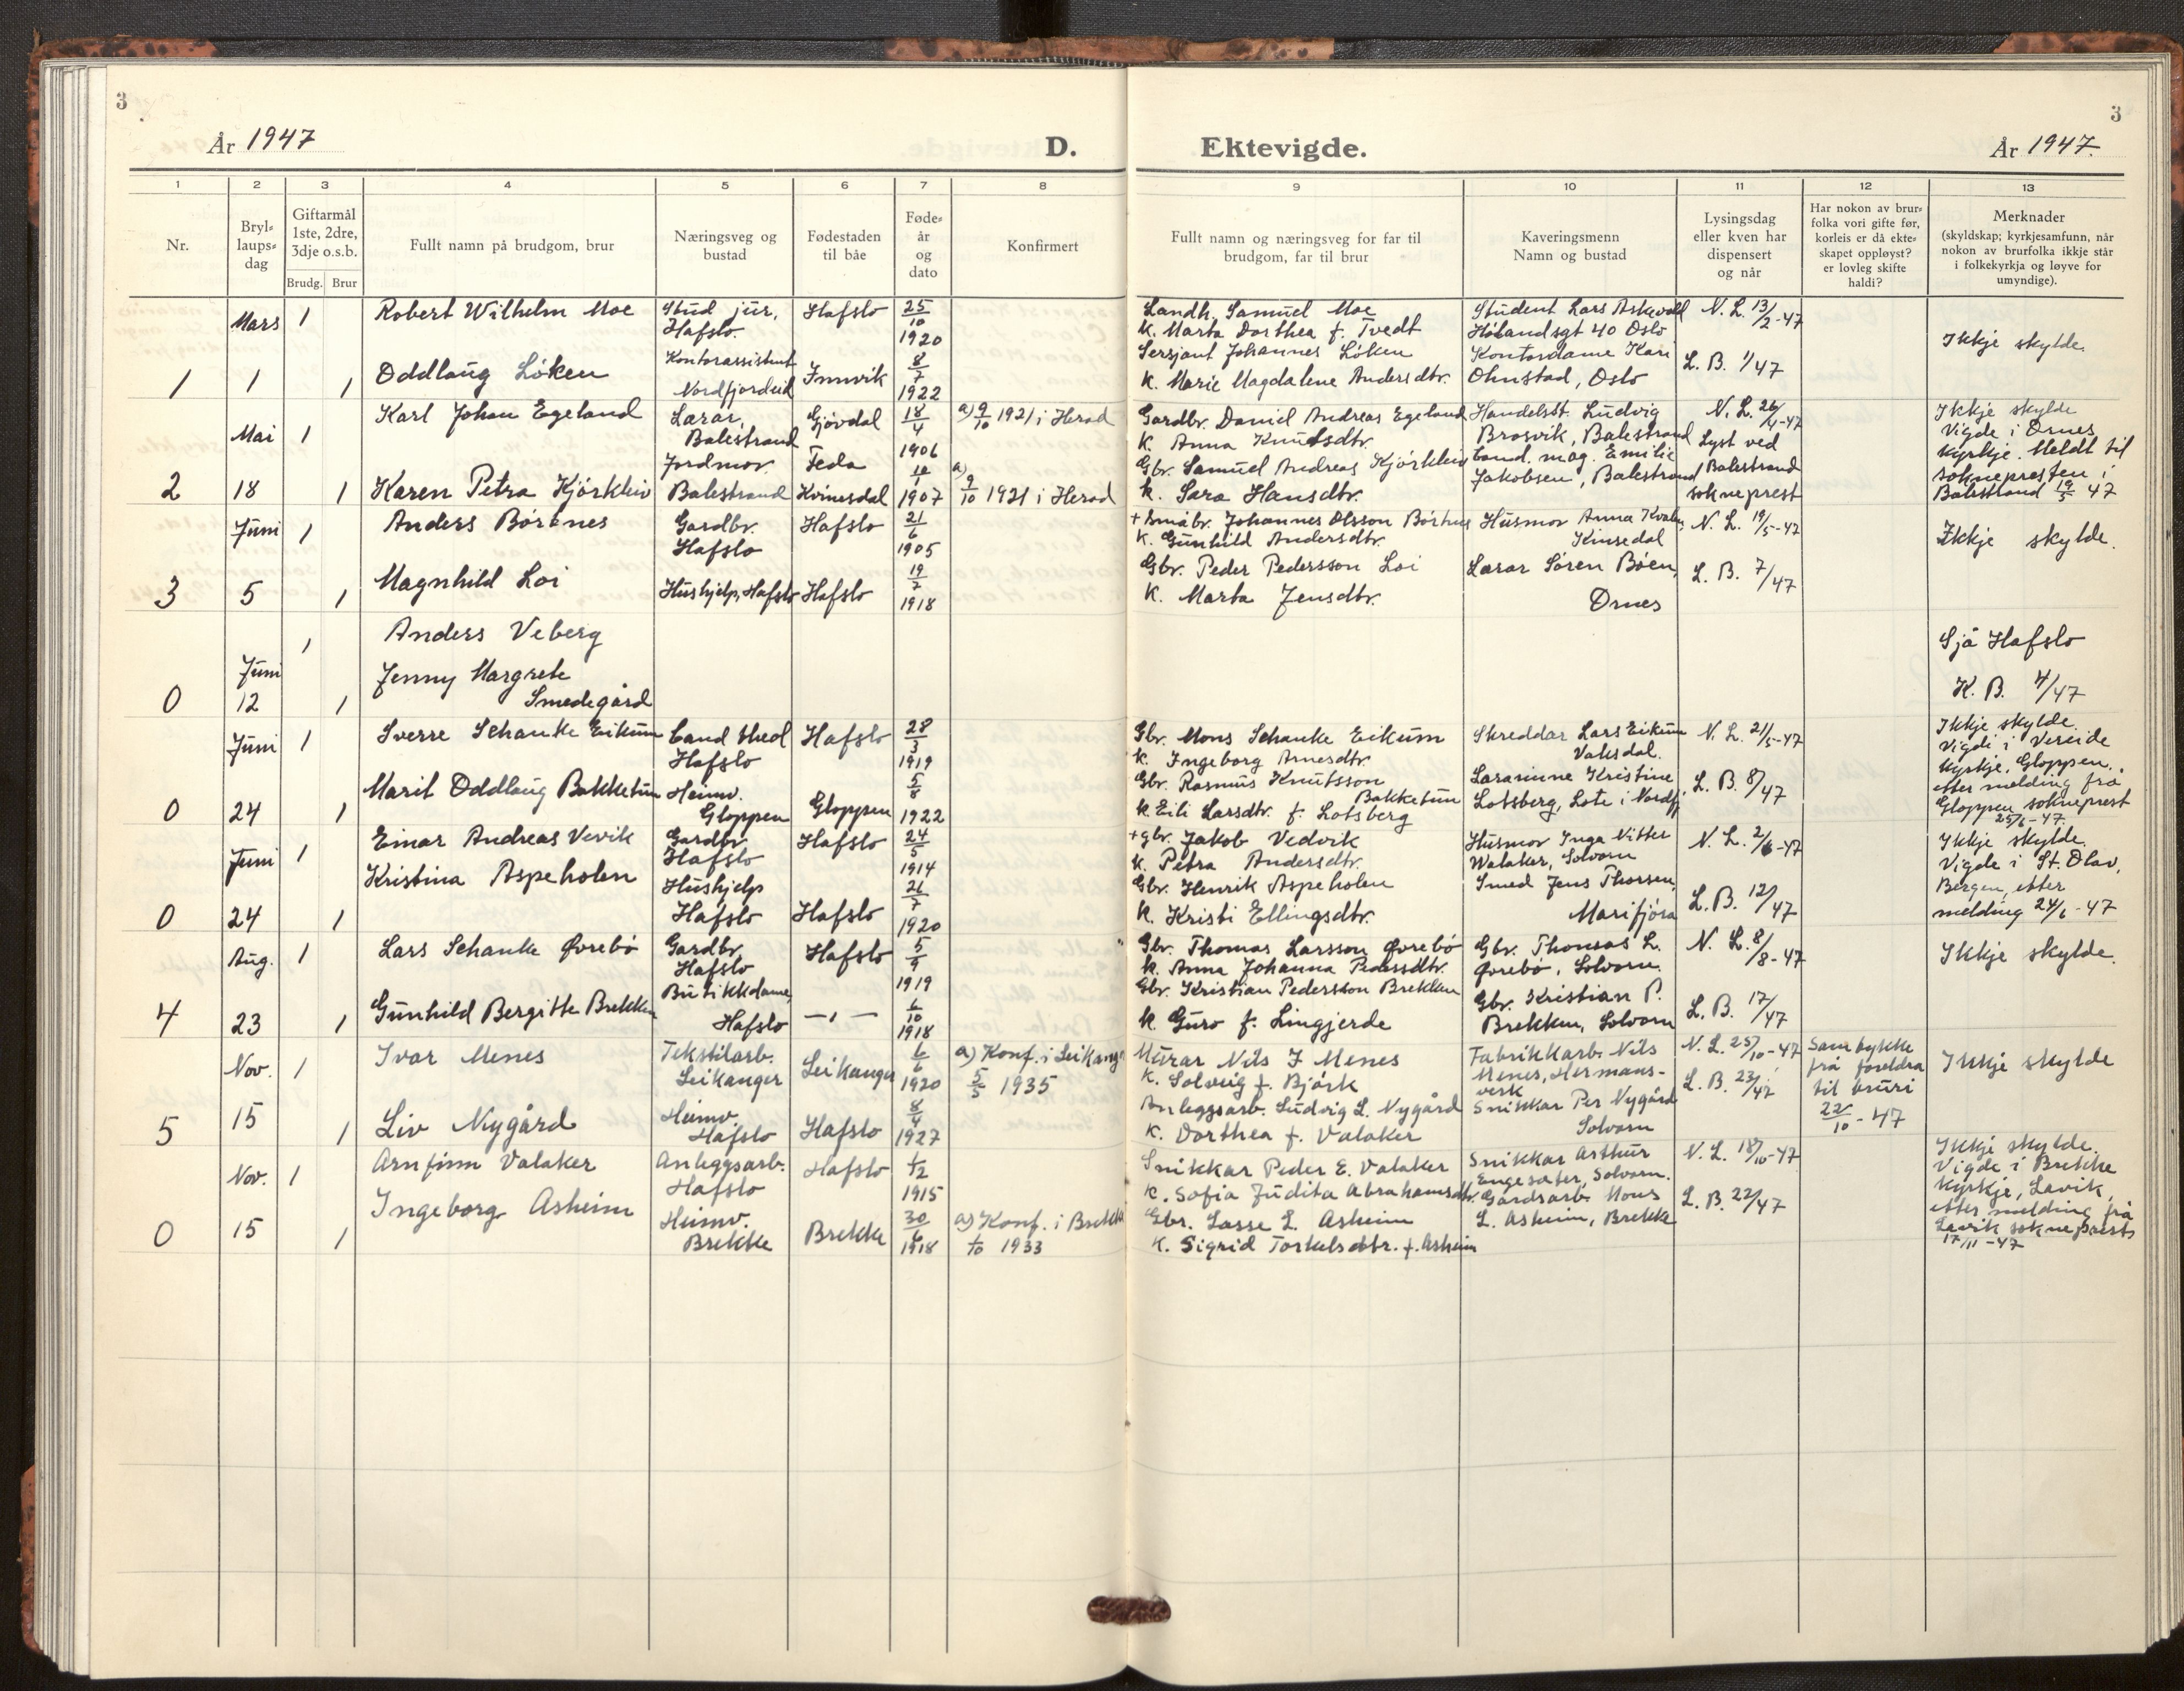 3
År 1947
D.
Ektevigde.
År 1947.
3
1 2 3 4 5 6 7 8 9 10 11 12 13
Nr.
Bryl=
laups=
dag
Giftarmål
1ste, 2dre,
3dje o.s.b.
Brudg. Brur
Fullt namn på brudgom, brur
Næringsveg og
bustad
Fødestaden
til båe
Føde=
år
og
dato
Konfirmert
Fullt namn og næringsveg for far til
brudgom, far til brur
Kaveringsmenn
Namn og bustad
Lysingsdag
eller kven har
dispensert
og når
Har nokon av brur=
folka vori gifte før,
korleis er då ekte=
skapet oppløyst?
er lovleg skifte
haldi?
Merknader
(skyldskap; kyrkjesamfunn, når
nokon av brurfolka ikkje står
i folkekyrkja og løyve for
umyndige).
1
Mars
1
1
1
Robert Wilhelm Moe
Stud jur,
Hafslo.
Hafslo
25/10
1920
Landh. Samuel Moe
k. Marta Dorthea f. Tvedt
Student Lars Askvoll
Holandsgt 40 Oslo
N. L. 13/2-47
Oddlaug Løken
Kontorassistent
Nordfjordeid
Innvik
8/7
1922
Sersjant Johannes Løken
k. Marie Magdalene Andersdtr.
Kontordame Kari
Ohnstad, Oslo
L. B. 1/47
Ikkje skylde.
2
Mai
18
1
1
Karl Johan Egeland
Lærar,
Balestrand
Gjøvdal
18/4
1906
a) 9/10 1921 i Herad
Gardbr. Daniel Andreas Egeland
k. Anna Knutsdtr.
Handelsst. Ludvig
Brosvik, Balestrand
N. L. 26/4-47
Lyst ved
Balestrand
sokneprest
Karen Petra Kjørkleiv
Jordmor.
Balestrand
Feda
Kvinesdal
1907
a)
9/10 1921 i Herad
Gbr. Samuel Andreas Kjørkleiv
k. Sara Hansdtr.
Cand. mag. Emilie
Jakobsen, Balestrand
Ikkje skylde
Vigde i Ornes
kyrkje. Meldt til
soknepresten i
Balestrand 19/5 47
3
Juni
5
1
1
Anders Børtnes
Gardbr.
Hafslo
Hafslo
21/6
1905
+ Småbr. Johannes Olsson Børtnes
k. Gunhild Andersdtr.
Husmor Anna Kvalen,
Kinsedal
N. L. 19/5-47
Magnhild Loi
Hushjelp, Hafslo
Hafslo
19/7
1918
Gbr. Peder Pedersson Loi
k. Marta Jensdtr.
Lærar Søren Bøen,
Ornes
L. B. 7/47
Ikkje skylde.
0
Juni
12
1
1
Anders Veberg
Jenny Margrete
Smedegård
Sjå Hafslo
K. B. 4/47
0
Juni
24
1
1
Sverre Schanke Eikum
Cand theol
Hafslo
Hafslo
28/3
1919
Gbr. Mons Schanke Eikum
k. Ingeborg Arnesdtr.
Skreddar Lars Eikum
Vaksdal.
N. L. 21/5-47
Marit Oddlaug Bakketun
Heimv.
Gloppen
Gloppen
5/8
1922
Gbr. Rasmus Knutsson
Bakketun
k. Eli Larsdtr. f. Lotsberg
Lærarinne Kristine
Lotsberg, Lote i Nordfj.
L. B. 8/47
Ikkje skylde.
Vigde i Vereide
kyrkje, Gloppen,
etter melding frå
Gloppen sokneprest
25/6-47.
0
Juni
24
1
1
Einar Andreas Vevik
Gardbr.
Hafslo
Hafslo
24/5
1914
+ gbr. Jakob Vedvik
k. Petra Andersdtr.
Husmor Inga Nitter
Walaker, Solvorn
N. L. 2/6-47
Kristina Aspeholen
Hushjelp
Hafslo
Hafslo
21/7
1920
Gbr. Henrik Aspeholen
k. Kristi Ellingsdtr.
Smed Jens Thorsen,
Marifjøra
L. B. 12/47
Ikkje skylde.
Vigde i St. Olav,
Bergen, etter
melding 24/6-47
4
Aug.
23
1
1
Lars Schanke Øvrebø
Gardbr.
Hafslo
Hafslo
5/9
1919
Gbr. Thomas Larsson Øvrebø
k. Anna Johanna Pedersdtr.
Gbr. Thomas L.
Øvrebø, Solvorn.
N. L. 8/8-47
Gunhild Bergitte Brekken
Butikkdame,
Hafslo
— " —
6/10
1918
Gbr. Kristian Pedersson Brekken
k. Guro f. Lingjerde
Gbr. Kristian P.
Brekken, Solvorn
L. B. 17/47
Ikkje skylde.
5
Nov.
15
1
1
Ivar Menes
Tekstilarb.
Leikanger
Leikanger
6/6
1920
a) Konf. i Leikanger
5/5 1935
Murar Nils I Menes
k. Solveig f. Bjørk
Fabrikkarb. Nils
Menes, Hermans-
verk
N. L. 25/10-47
Liv Nygård
Heimv.
Hafslo
Hafslo
8/4
1927
Anleggsarb. Ludvig L. Nygård
k. Dorthea f. Valaker
Snikkar Per Nygård
Solvorn
L. B. 23/47
Samtykke
frå foreldra
til bruri
22/10-47
Ikkje skylde
0
Nov.
15
1
1
Arnfinn Valaker
Anleggsarb.
Hafslo
Hafslo
1/2
1915
Snikkar Peder E. Valaker
k. Sofia Judita Abrahamsdtr.
Snikkar Arthur
Engesæter, Solvorn.
N. L. 18/10-47
Ingeborg Asheim
Heimv.
Brekke
Brekke
30/6
1918
a) Konf. i Brekke
1/10 1933
Gbr. Lasse L. Asheim
k. Sigrid Torkelsdtr. f. Asheim
Gardsarb. Mons
L. Asheim, Brekke
L. B. 22/47
Ikkje skylde.
Vigde i Brekke
kyrkje, Lavik,
etter melding frå
Lavik sokneprest
17/11-47